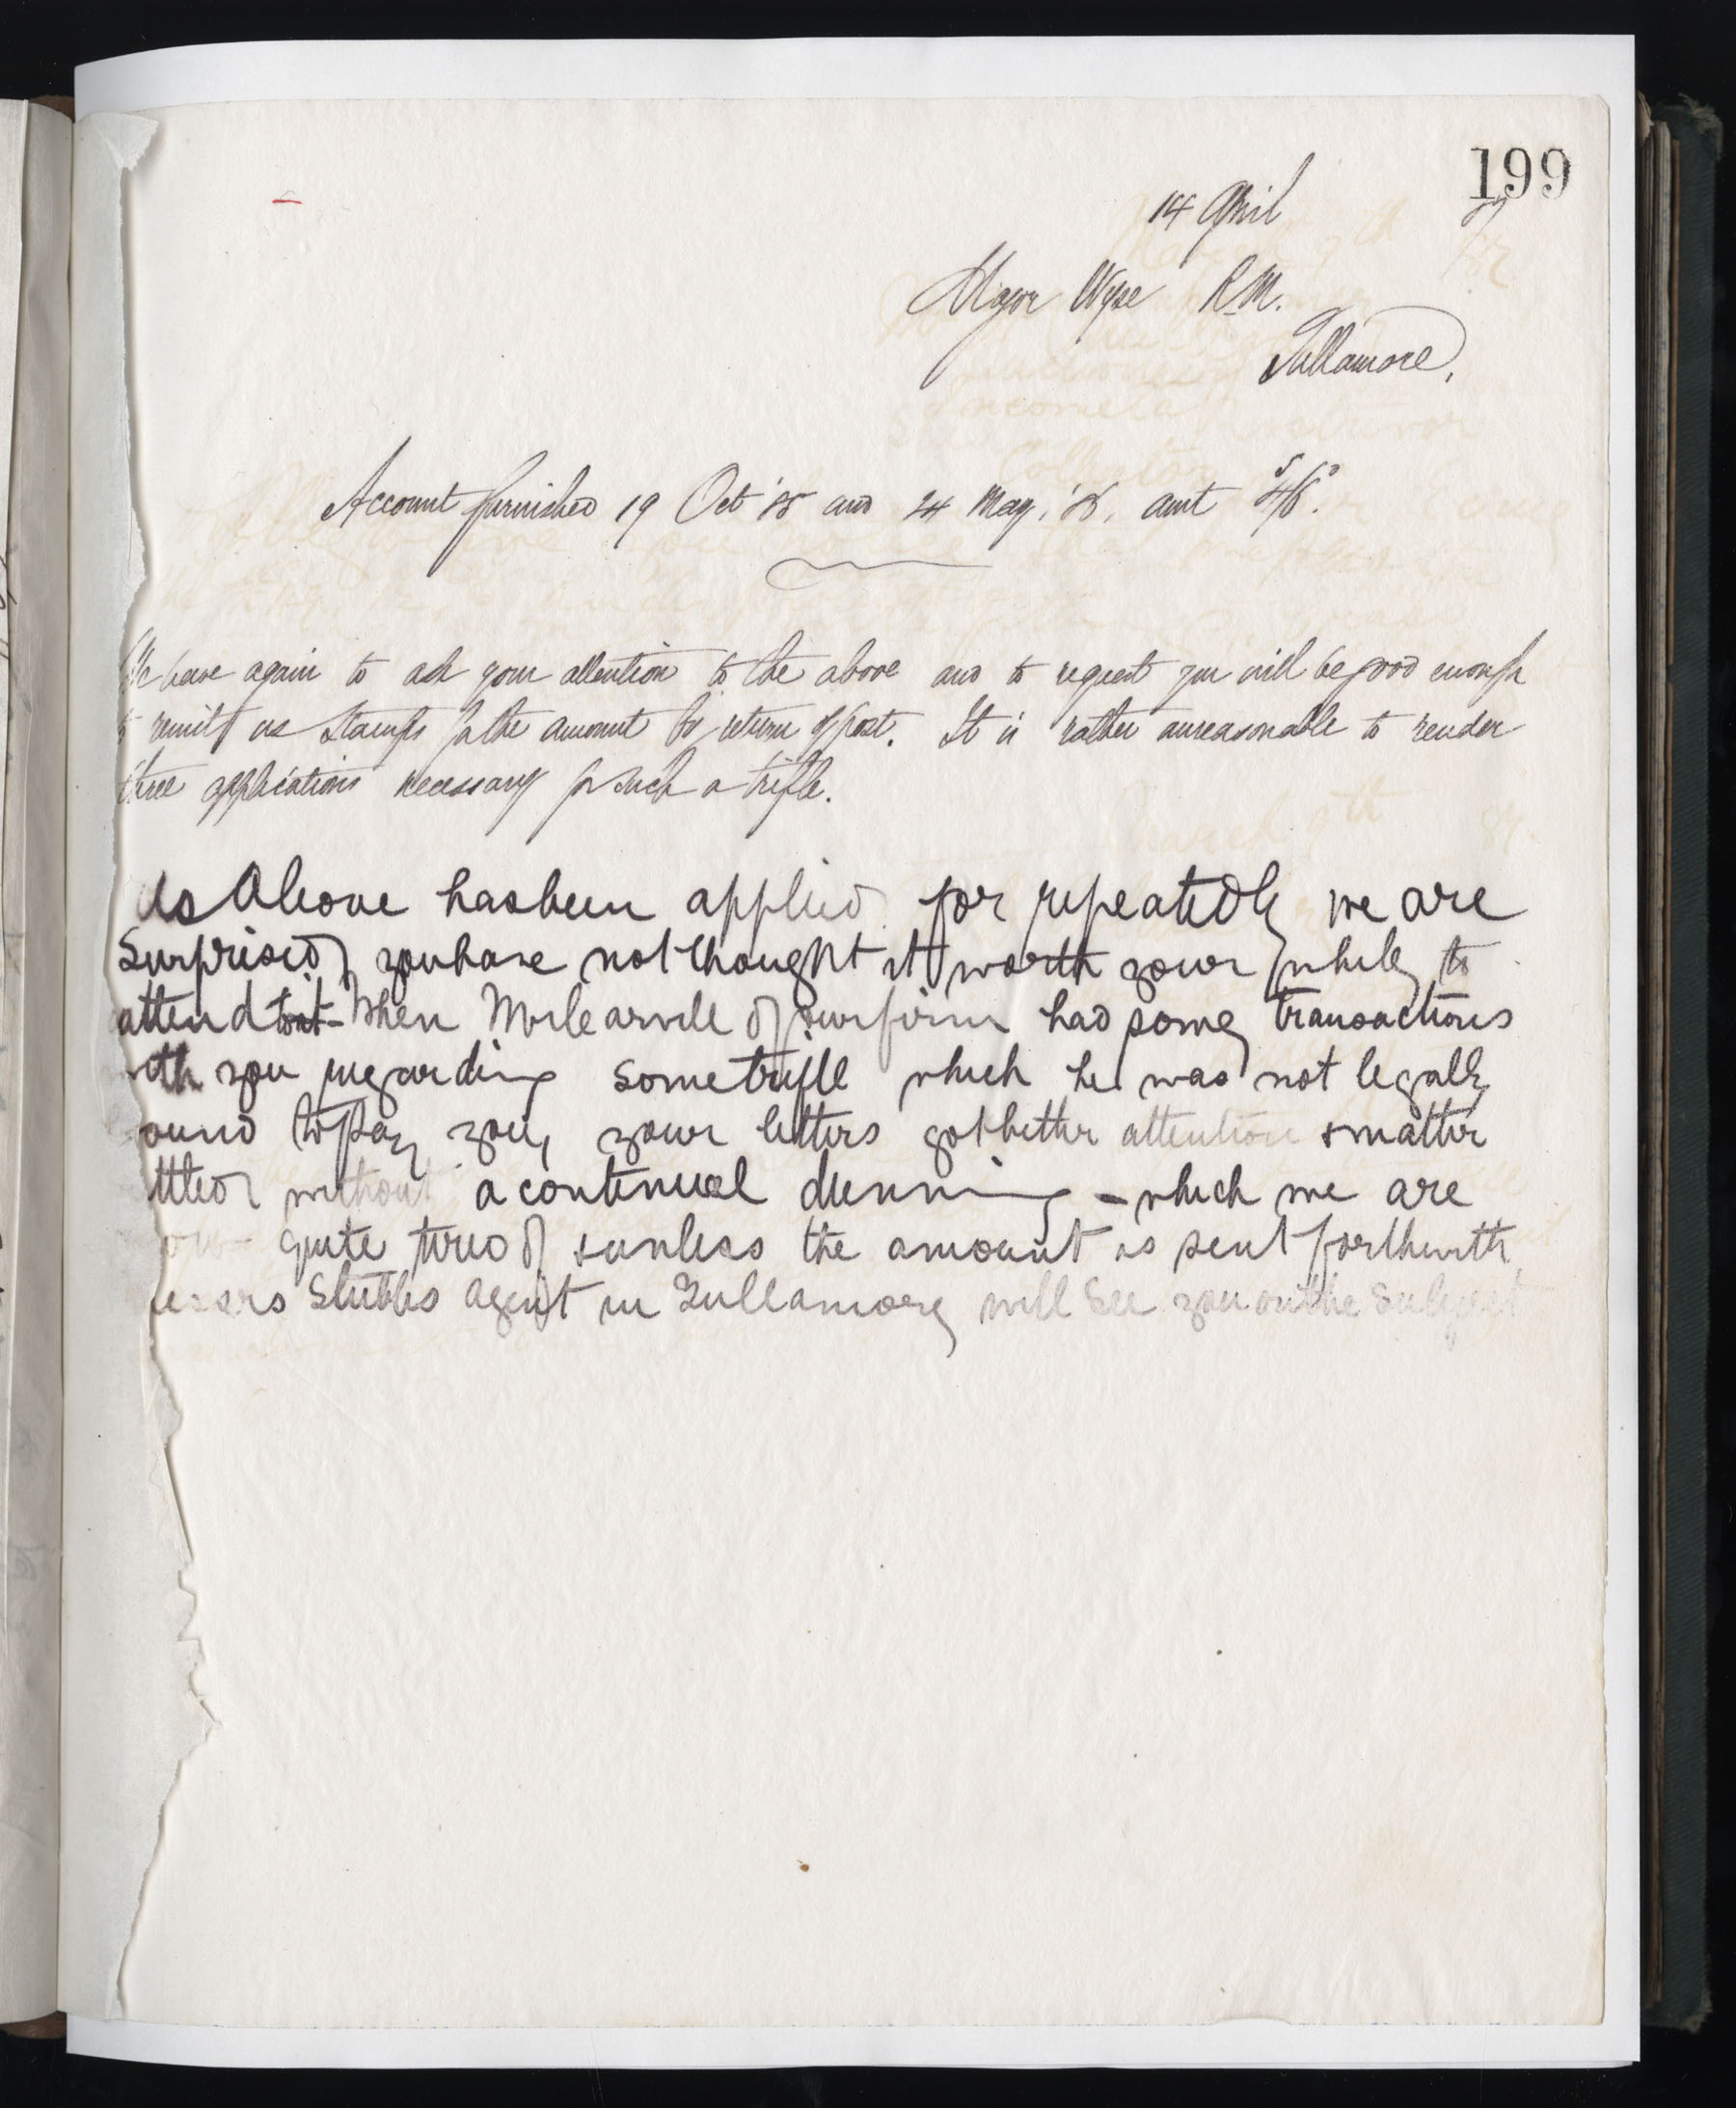 199
14 April 87
Major Wyse R.M.
Tullamore,
Account furnished 19 Oct '85 and 24 May, '86, amt
We have again to ask your attention to the above and to request you will be good enough
remit us stamps for the amount by return of post. It is rather unreasonable to render
three applications necessary for such a trifle.
As Above has been applied for repeatedly we are
Surprised you have not thought it worth your while to
attend to it - When of our firm had some transactions
ith you regarding some trifle which he was not legally
ound to pay you, your letters got better attention & matter
ttled without a continual dunning - which we are
ow quite tired of & unless the amount is sent forthwith
essrs Stubbs agent in Tullamore will See you on the Subject